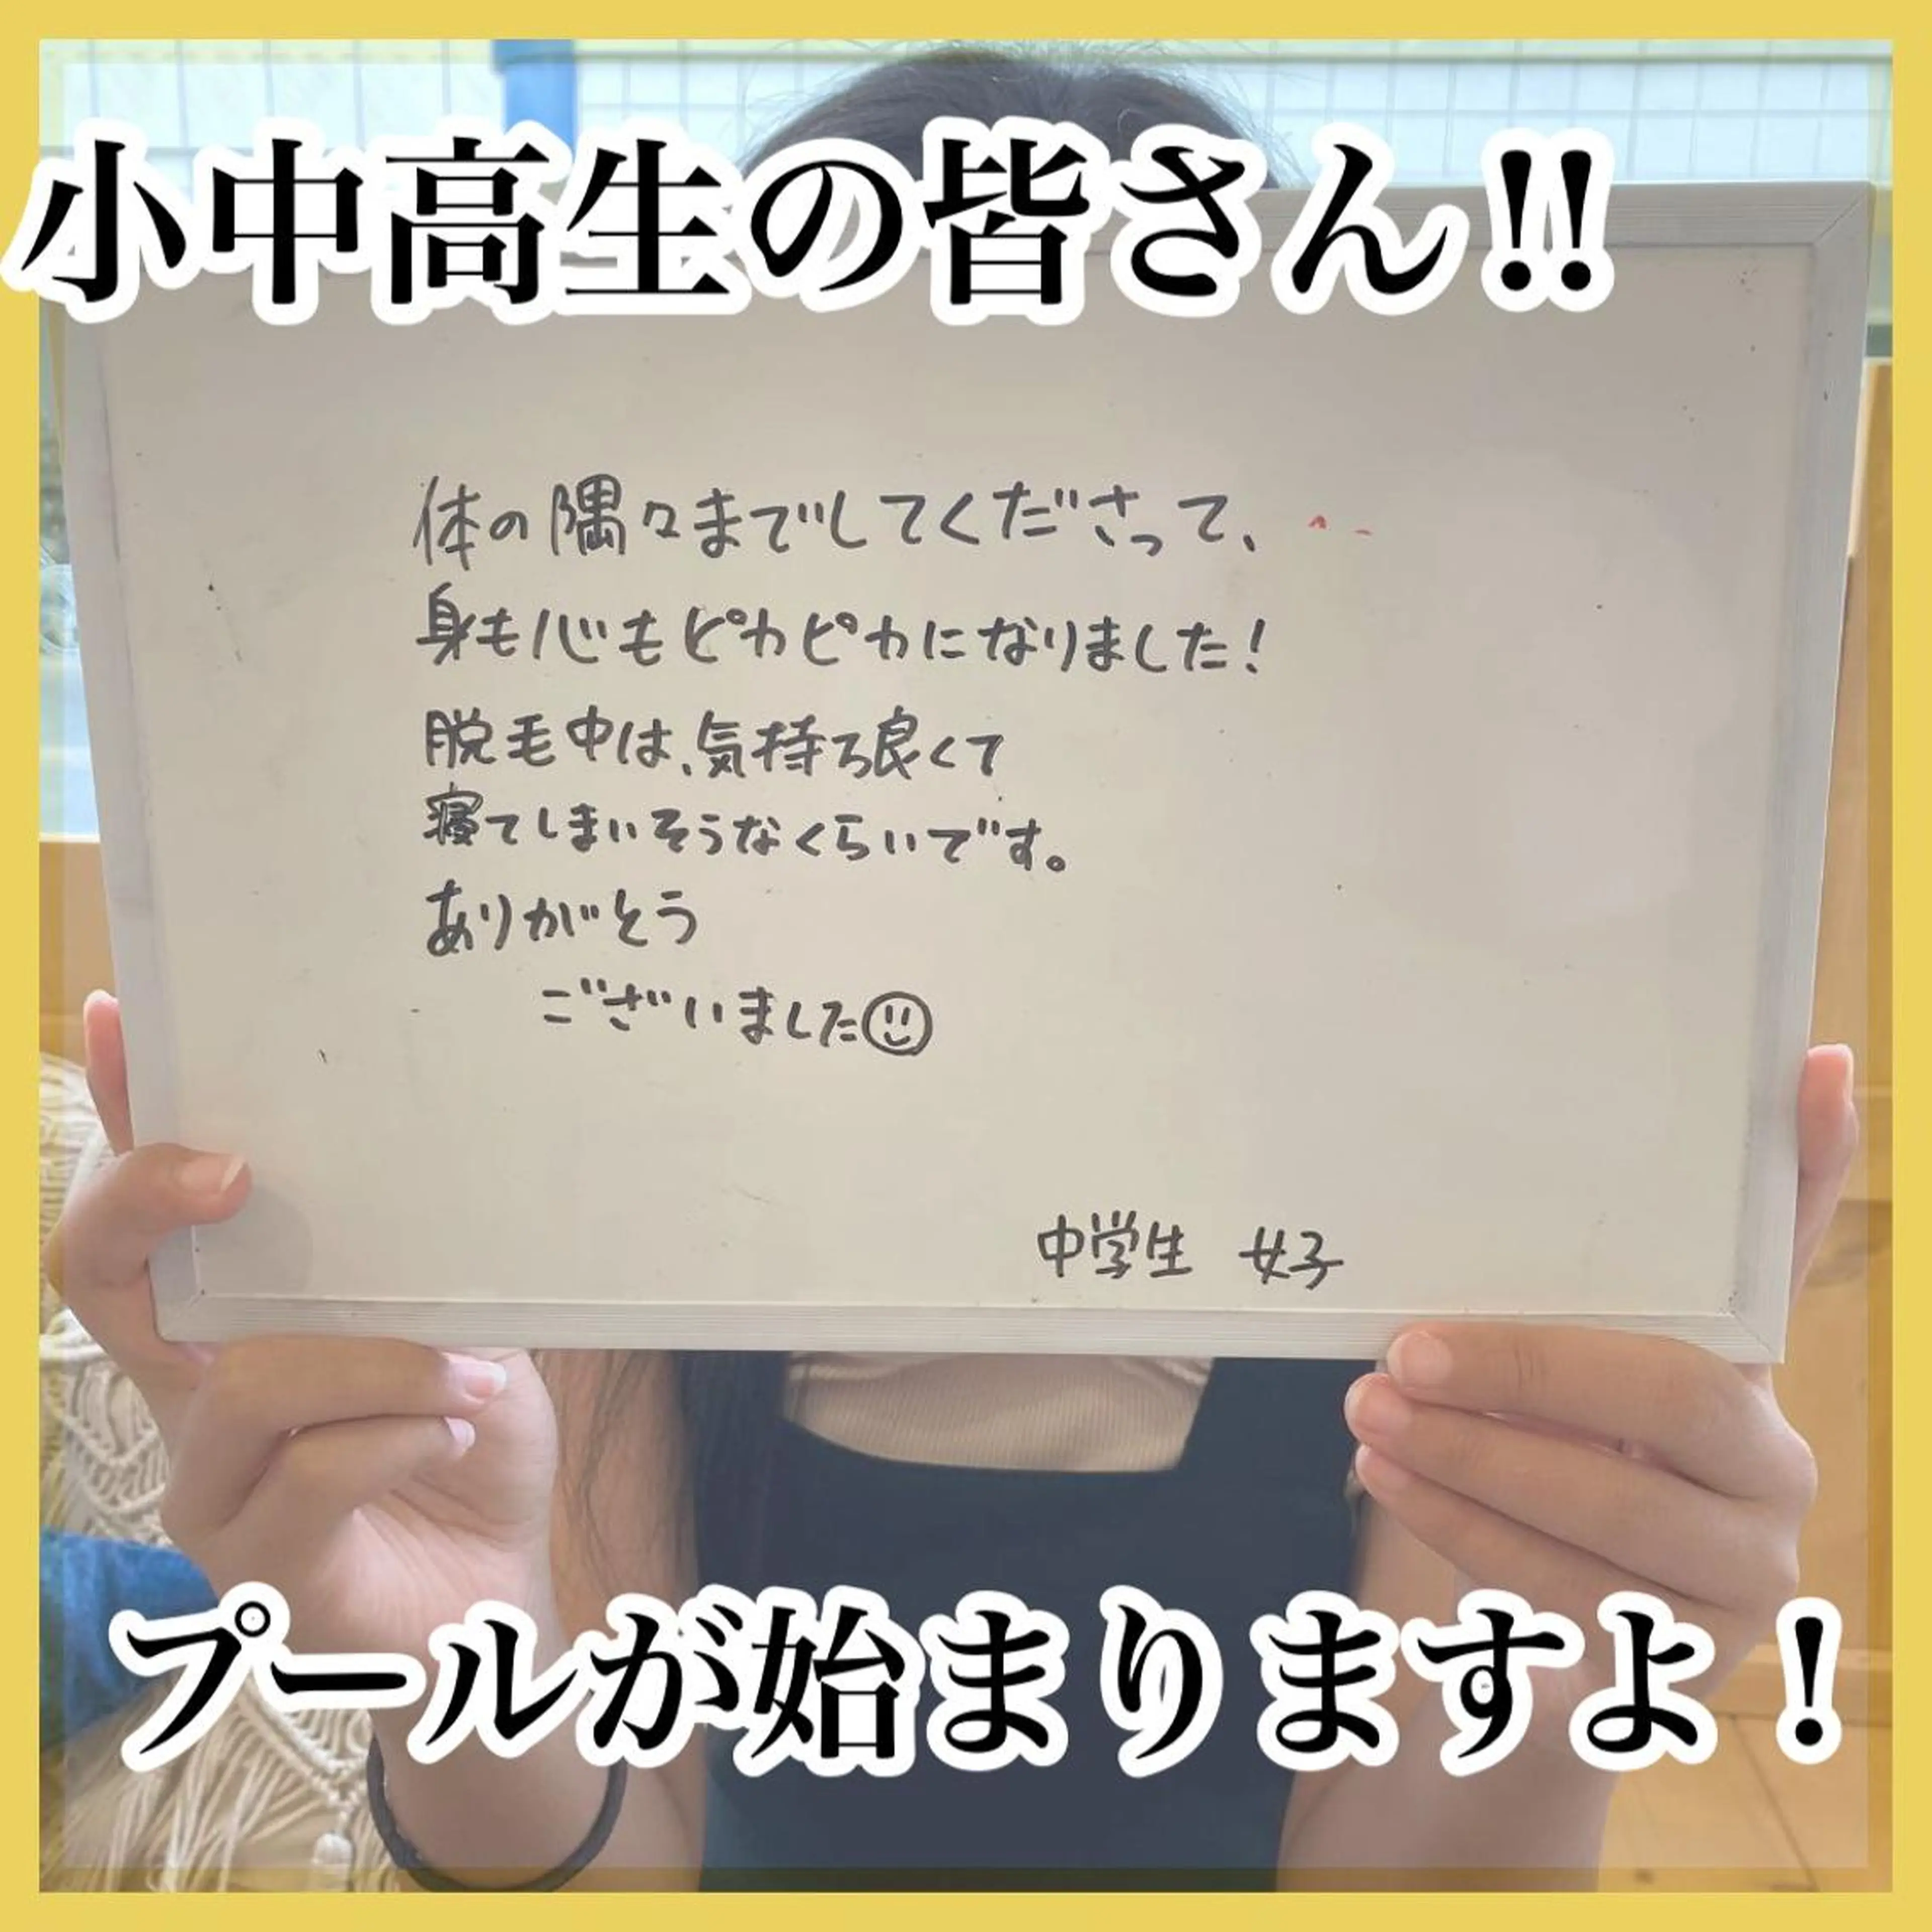 小中高生の皆さん!!
体の隅々まてしてくださって、
身も心もピカピカになりました!
脱毛中は、気持ち良くて
寝てしまいそうなくらいです。
ありがとう
ございました
中学生 女子
プールが始まりますよ!